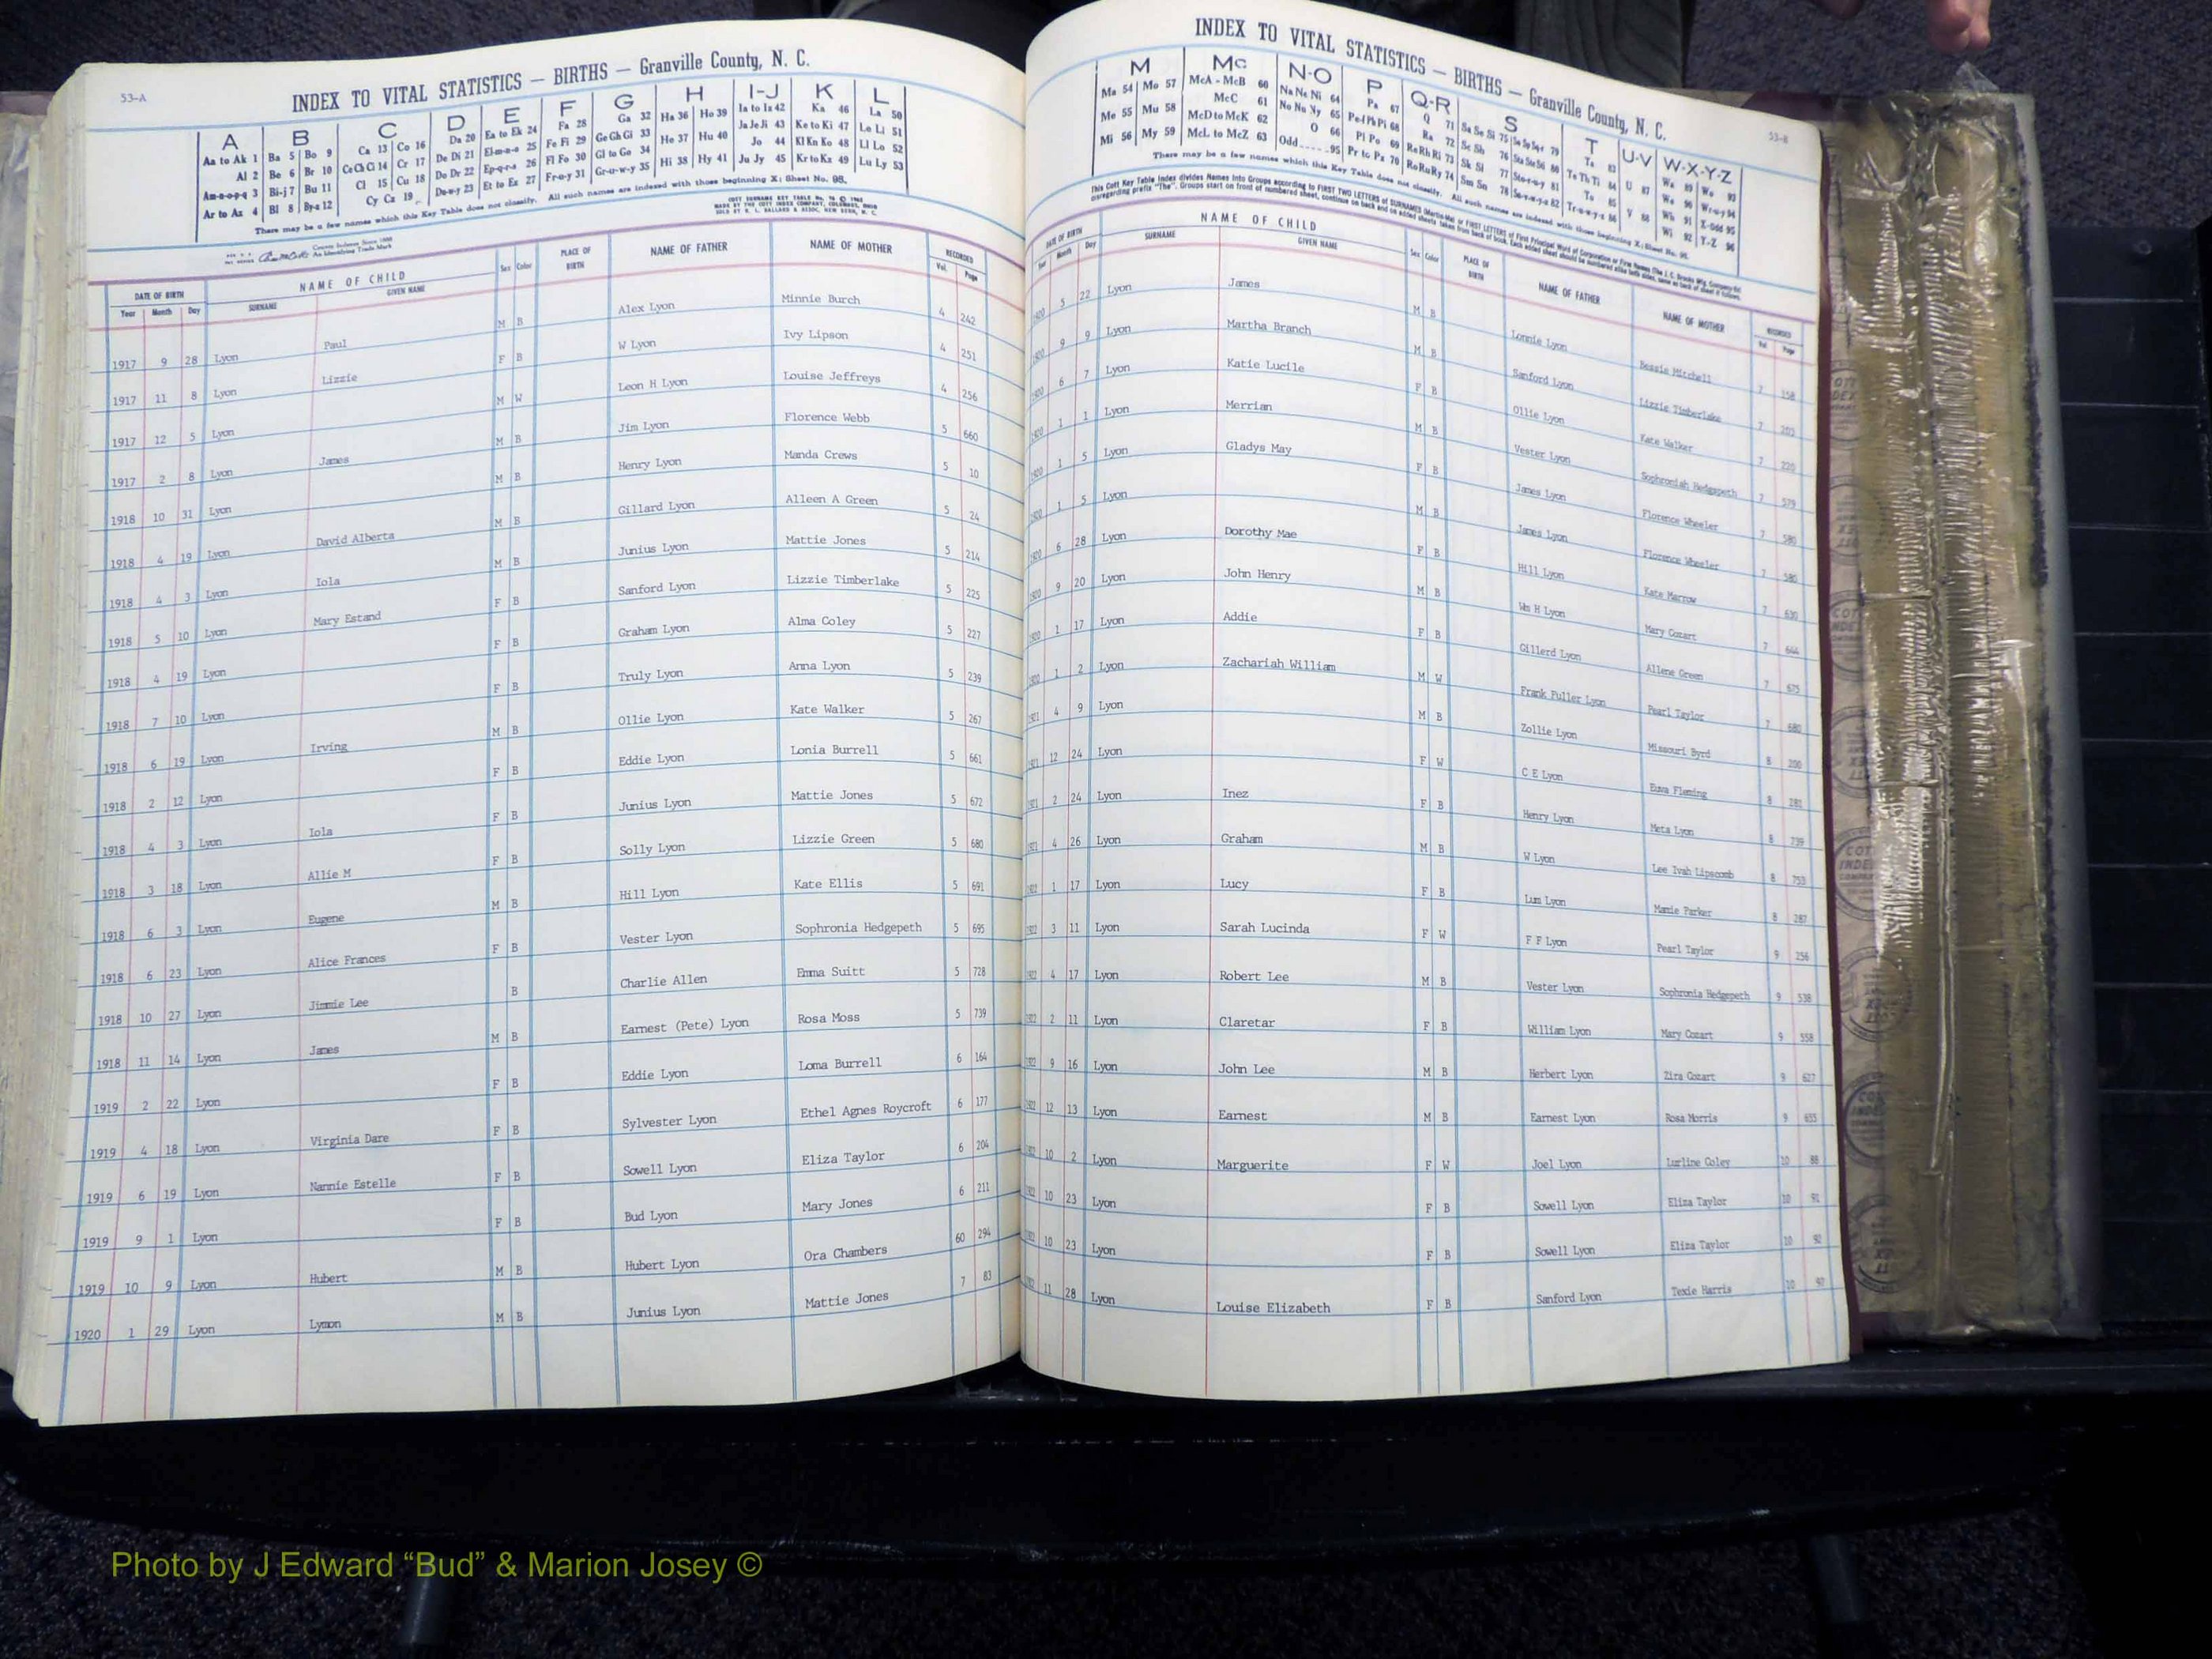 53-A
INDEX TO VITAL STATISTICS — BIRTHS — Granville County, N. C.
A B C D E F G H I-J K L
Aa to Ak 1 Ba 5 Bo 9 Ca 13 Co 16 Da 20 Ea to Ek 24 Fa 28 Ga 32 Ha 36 Ho 39 Ia to Iz 42 Ka 46 La 50
Al 2 Be 6 Br 10 Ce Ch Ci 14 Cr 17 De Di 21 El-m-n-o 25 Fe Fi 29 Ge Gh Gi 33 He 37 Hu 40 Ja Je Ji 43 Ke to Ki 47 Le Li 51
Am-n-o-p-q 3 Bi-j 7 Bu 11 Cl 15 Cu 18 Do Dr 22 Ep-q-r-s 26 Fl Fo 30 Gl to Go 34 Hi 38 Hy 41 Jo 44 Kl Kn Ko 48 Ll Lo 52
Ar to Az 4 Bl 8 By-z 12 Cy Cz 19 Du-w-y 23 Et to Ez 27 Fr-u-y 31 Gr-u-w-y 35 Ju Jy 45 Kr to Kz 49 Lu Ly 53
There may be a few names which this Key Table does not classify. All such names are indexed with those beginning X; Sheet No. 95.
DATE OF BIRTH NAME OF CHILD Sex Color PLACE OF BIRTH NAME OF FATHER NAME OF MOTHER RECORDED
Year Month Day SURNAME GIVEN NAME Vol. Page
1917 9 28 Lyon Paul M B Alex Lyon Minnie Burch 4 242
1917 11 8 Lyon Lizzie F B W Lyon Ivy Lipson 4 251
1917 12 5 Lyon M W Leon H Lyon Louise Jeffreys 4 256
1917 2 8 Lyon James M B Jim Lyon Florence Webb 5 660
1918 10 31 Lyon M B Henry Lyon Manda Crews 5 10
1918 4 19 Lyon David Alberta M B Gillard Lyon Alleen A Green 5 24
1918 4 3 Lyon Iola M B Junius Lyon Mattie Jones 5 214
1918 5 10 Lyon Mary Estand F B Sanford Lyon Lizzie Timberlake 5 225
1918 4 19 Lyon F B Graham Lyon Alma Coley 5 227
1918 7 10 Lyon F B Truly Lyon Anna Lyon 5 239
1918 6 19 Lyon Irving M B Ollie Lyon Kate Walker 5 267
1918 2 12 Lyon F B Eddie Lyon Lonia Burrell 5 661
1918 4 3 Lyon Iola F B Junius Lyon Mattie Jones 5 672
1918 3 18 Lyon Allie M F B Solly Lyon Lizzie Green 5 680
1918 6 3 Lyon Eugene M B Hill Lyon Kate Ellis 5 691
1918 6 23 Lyon Alice Frances F B Vester Lyon Sophronia Hedgepeth 5 695
1918 10 27 Lyon Jimmie Lee B Charlie Allen Emma Suitt 5 728
1918 11 14 Lyon James M B Earnest (Pete) Lyon Rosa Moss 5 739
1919 2 22 Lyon F B Eddie Lyon Loma Burrell 6 164
1919 4 18 Lyon Virginia Dare F B Sylvester Lyon Ethel Agnes Roycroft 6 177
1919 6 19 Lyon Nannie Estelle F B Sowell Lyon Eliza Taylor 6 204
1919 9 1 Lyon F B Bud Lyon Mary Jones 6 211
1919 10 9 Lyon Hubert M B Hubert Lyon Ora Chambers 60 294
1920 1 29 Lyon Lymon M B Junius Lyon Mattie Jones 7 83
INDEX TO VITAL STATISTICS — BIRTHS — Granville County, N. C.
M Mc N-O P Q-R S T U-V W-X-Y-Z
Ma 54 Mo 57 McA - McB 60 Na Ne Ni 64 Pa 67 Q 71
Me 55 Mu 58 McC 61 No Nu Ny 65 Pe-f Ph Pi 68 Ra 72
Mi 56 My 59 McD to McK 62 O 66 Pl Po 69 Re Rh Ri 73
McL to McZ 63 Odd 95 Pr to Pz 70 Ro Ru Ry 74
There may be a few names which this Key Table does not classify. All such names are indexed with those beginning X; Sheet No. 95.
DATE OF BIRTH NAME OF CHILD Sex Color PLACE OF BIRTH NAME OF FATHER NAME OF MOTHER RECORDED
Month Day SURNAME GIVEN NAME Vol. Page
5 22 Lyon James M B Lonnie Lyon Bessie Mitchell 7 158
9 9 Lyon Martha Branch M B Sanford Lyon Lizzie Timberlake 7 203
6 7 Lyon Katie Lucile F B Ollie Lyon Kate Walker 7 220
1 1 Lyon Merrian M B Vester Lyon Sophroniah Hedgepeth 7 579
1 5 Lyon Gladys May F B James Lyon Florence Wheeler 7 580
1 5 Lyon M B James Lyon Florence Wheeler 7 580
6 28 Lyon Dorothy Mae F B Hill Lyon Kate Marrow 7 630
9 20 Lyon John Henry M B Wm H Lyon Mary Cozart 7 644
1 17 Lyon Addie F B Gillerd Lyon Allene Green 7 675
1 2 Lyon Zachariah William M W Frank Fuller Lyon Pearl Taylor 7 680
4 9 Lyon M B Zollie Lyon Missouri Byrd 8 200
12 24 Lyon F W C E Lyon Fleming 8 282
2 24 Lyon Inez F B Henry Lyon Meta Lyon 8 739
4 26 Lyon Graham M B W Lyon Lee Ivah Lipscomb 8 753
1 17 Lyon Lucy F B Lum Lyon Mamie Parker 8 287
3 11 Lyon Sarah Lucinda F W F F Lyon Pearl Taylor 9 256
4 17 Lyon Robert Lee M B Vester Lyon Sophronia Hedgepeth 9 538
2 11 Lyon Claretar F B William Lyon Mary Cozart 9 558
9 16 Lyon John Lee M B Herbert Lyon Zira Cozart 9 627
12 13 Lyon Earnest M B Earnest Lyon Rosa Morris 9 655
10 2 Lyon Marguerite F W Joel Lyon Lurline Coley 10 88
10 23 Lyon F B Sowell Lyon Eliza Taylor 10 91
10 23 Lyon F B Sowell Lyon Eliza Taylor 10 92
11 28 Lyon Louise Elizabeth F B Sanford Lyon Texie Harris 10 97
Photo by J Edward “Bud” & Marion Josey ©